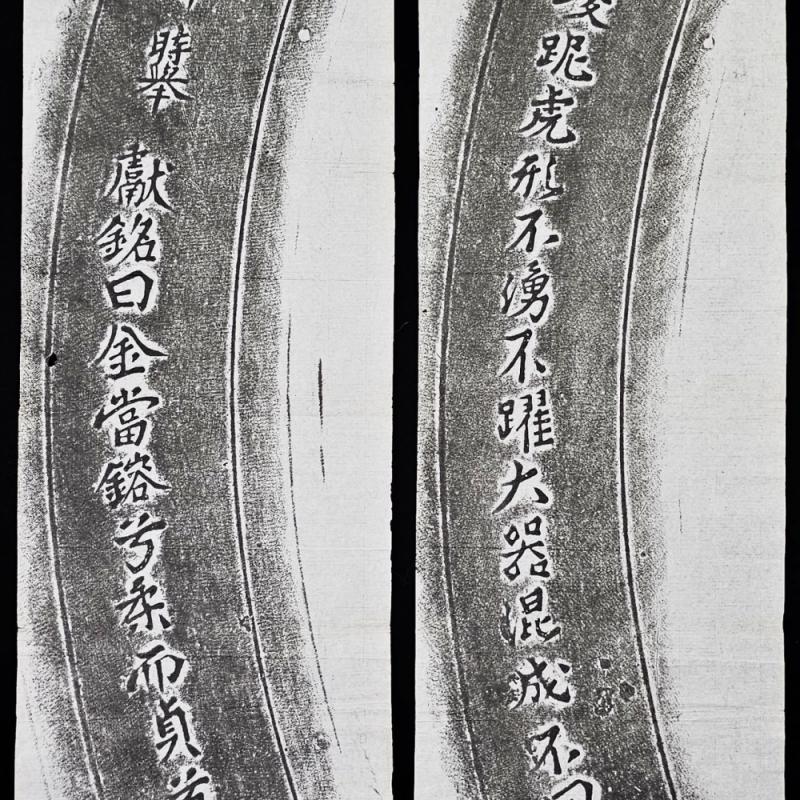 跜虎形不湧不躍大器混成不
獻銘曰金當鎔兮柔而貞